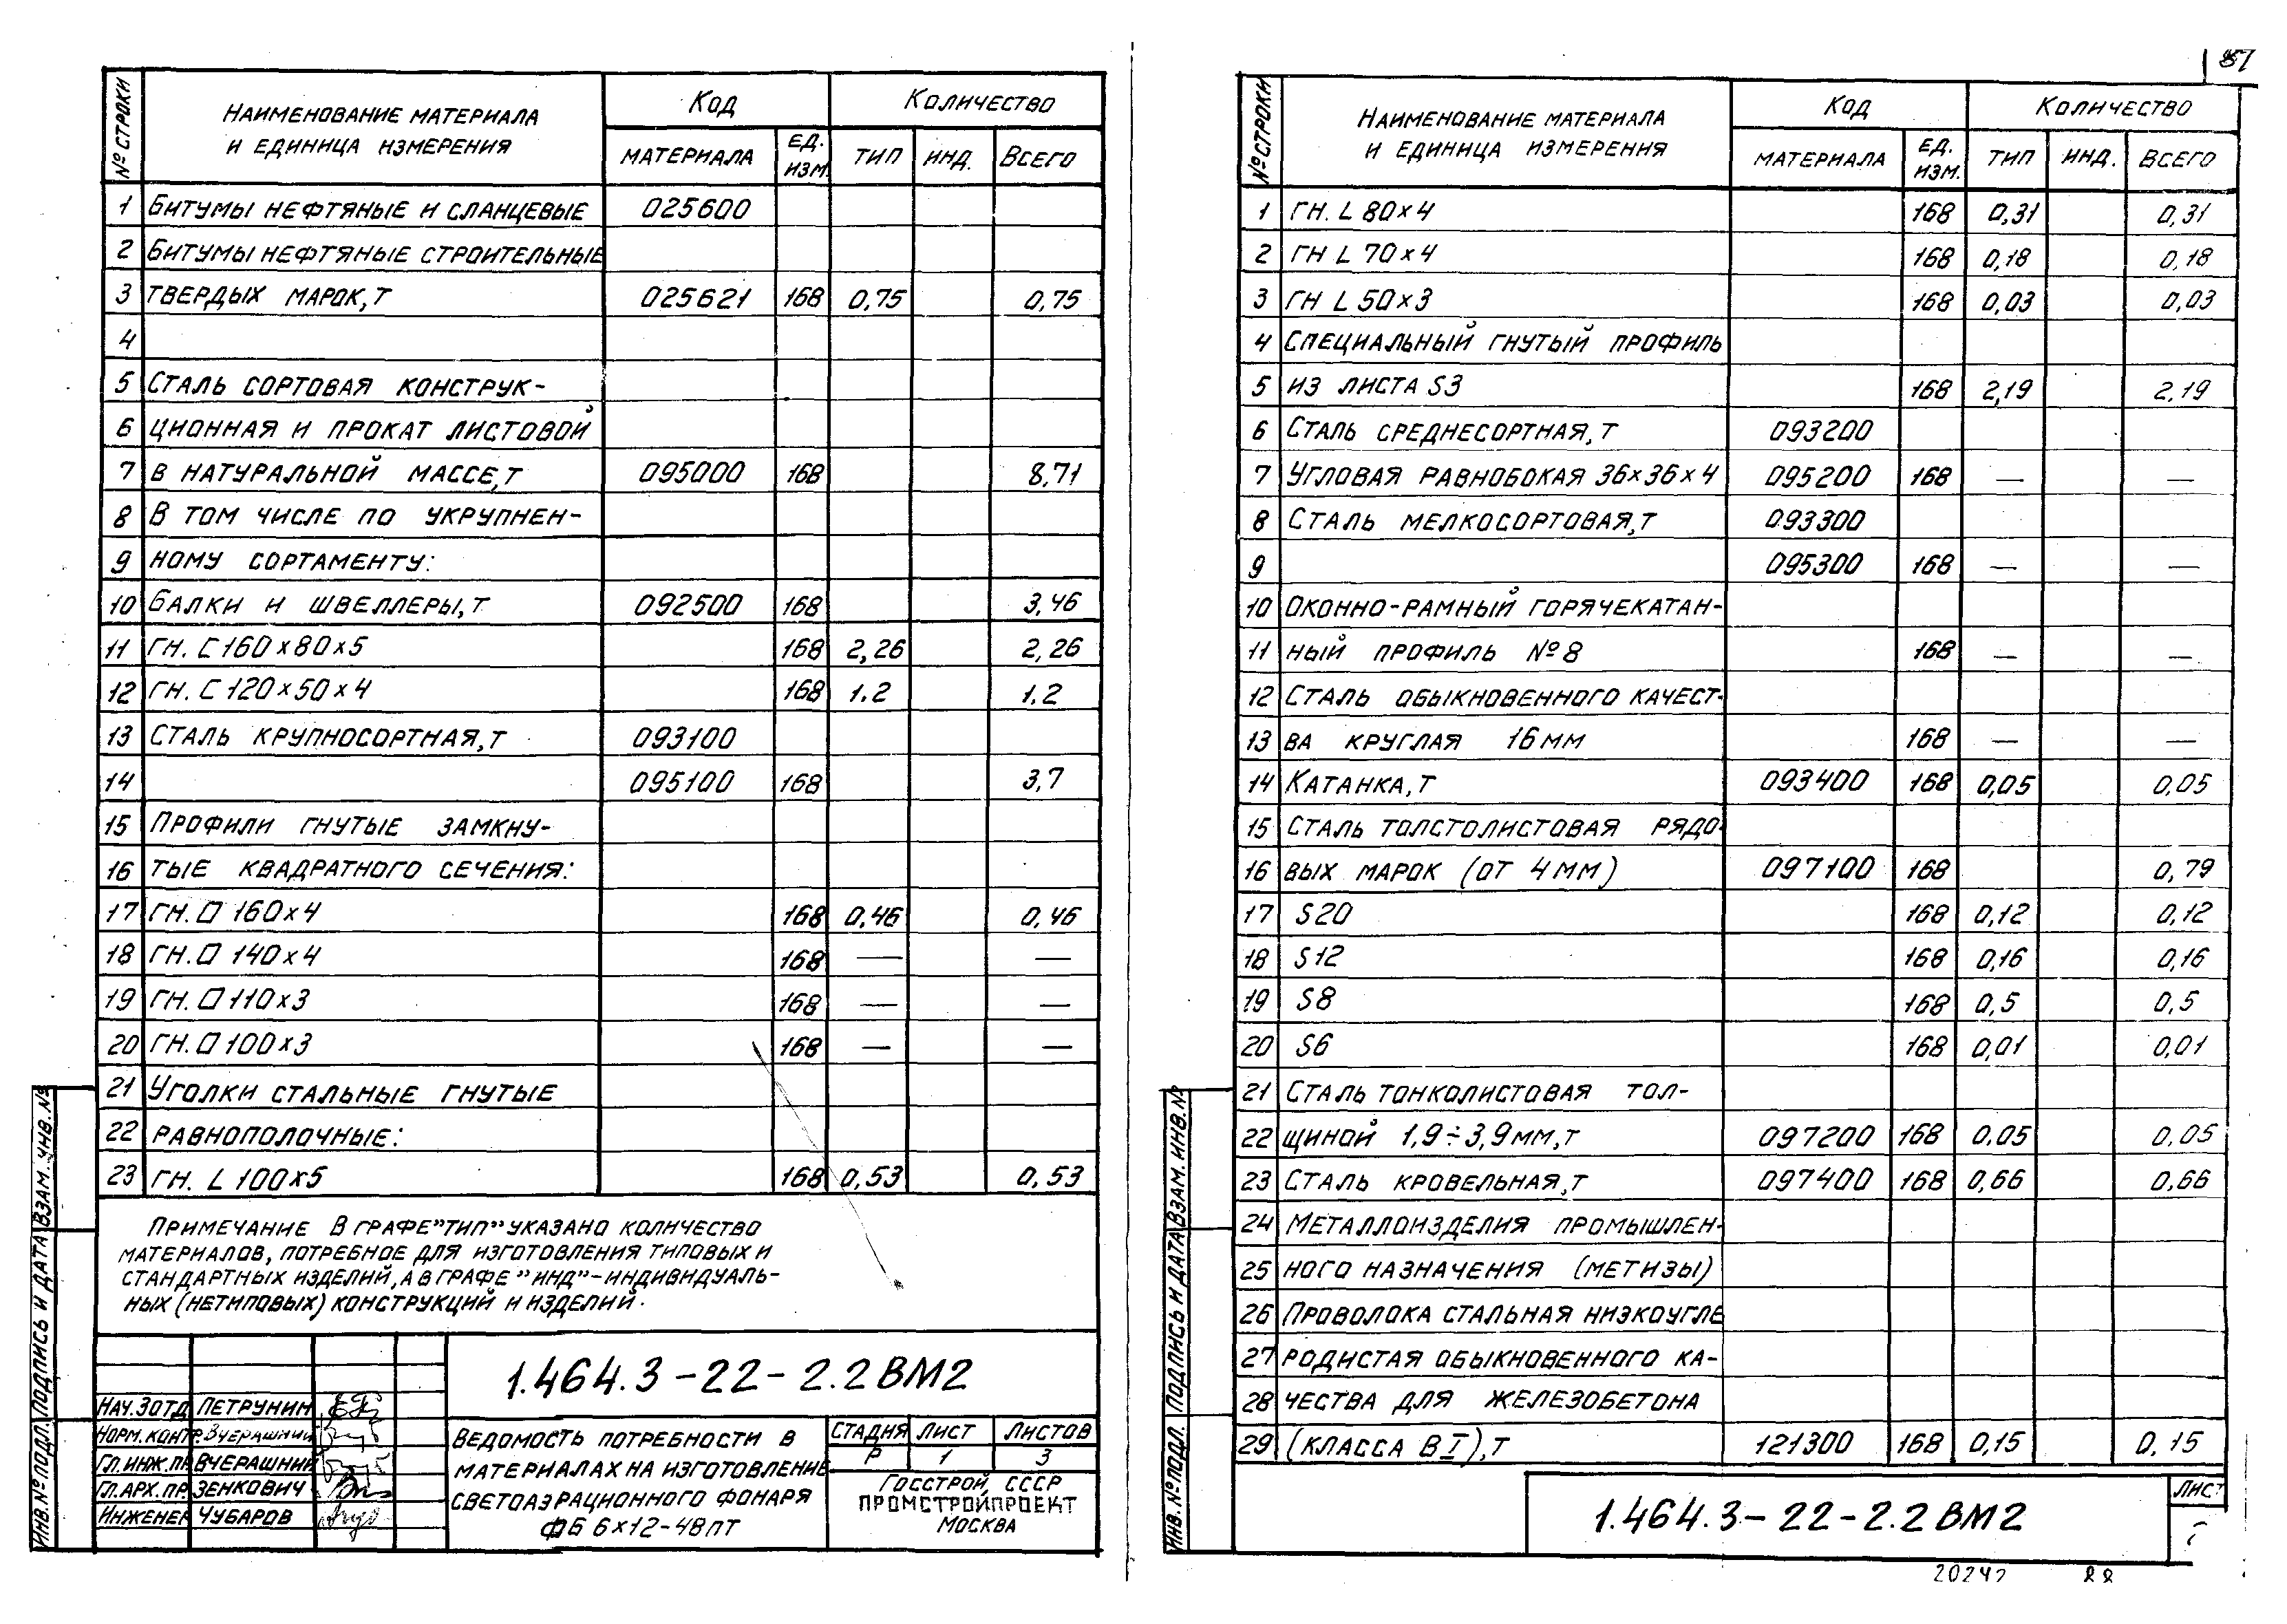 87
№ СТРОКИ | НАИМЕНОВАНИЕ МАТЕРИАЛА И ЕДИНИЦА ИЗМЕРЕНИЯ | КОД | КОЛИЧЕСТВО
МАТЕРИАЛА | ЕД. ИЗМ. | ТИП | ИНД. | ВСЕГО
1 БИТУМЫ НЕФТЯНЫЕ И СЛАНЦЕВЫЕ 025600
2 БИТУМЫ НЕФТЯНЫЕ СТРОИТЕЛЬНЫЕ
3 ТВЕРДЫХ МАРОК, Т 025621 168 0,75 0,75
4
5 СТАЛЬ СОРТОВАЯ КОНСТРУК-
6 ЦИОННАЯ И ПРОКАТ ЛИСТОВОЙ
7 В НАТУРАЛЬНОЙ МАССЕ, Т 095000 168 8,71
8 В ТОМ ЧИСЛЕ ПО УКРУПНЕН-
9 НОМУ СОРТАМЕНТУ:
10 БАЛКИ И ШВЕЛЛЕРЫ, Т 092500 168 3,46
11 ГН. С 160×80×5 168 2,26 2,26
12 ГН. С 120×50×4 168 1.2 1.2
13 СТАЛЬ КРУПНОСОРТНАЯ, Т 093100
14 095100 168 3,7
15 ПРОФИЛИ ГНУТЫЕ ЗАМКНУ-
16 ТЫЕ КВАДРАТНОГО СЕЧЕНИЯ:
17 ГН. □ 160×4 168 0,46 0,46
18 ГН. □ 140×4 168 — —
19 ГН. □ 110×3 168 — —
20 ГН. □ 100×3 168 — —
21 УГОЛКИ СТАЛЬНЫЕ ГНУТЫЕ
22 РАВНОПОЛОЧНЫЕ:
23 ГН. L 100×5 168 0,53 0,53
ПРИМЕЧАНИЕ В ГРАФЕ "ТИП" УКАЗАНО КОЛИЧЕСТВО
МАТЕРИАЛОВ, ПОТРЕБНОЕ ДЛЯ ИЗГОТОВЛЕНИЯ ТИПОВЫХ И
СТАНДАРТНЫХ ИЗДЕЛИЙ, А В ГРАФЕ "ИНД" - ИНДИВИДУАЛЬ-
НЫХ (НЕТИПОВЫХ) КОНСТРУКЦИЙ И ИЗДЕЛИЙ.
1.464.3-22-2.2ВМ2
НАЧ.ЗОТД ПЕТРУНИН
НОРМ.КОНТР. ВЧЕРАШНИЙ
ГЛ.ИНЖ.ПР. ВЧЕРАШНИЙ
ГЛ.АРХ.ПР. ЗЕНКОВИЧ
ИНЖЕНЕР ЧУБАРОВ
ВЕДОМОСТЬ ПОТРЕБНОСТИ В
МАТЕРИАЛАХ НА ИЗГОТОВЛЕНИЕ
СВЕТОАЭРАЦИОННОГО ФОНАРЯ
ФБ 6×12-48ПТ
СТАДИЯ ЛИСТ ЛИСТОВ
Р 1 3
ГОССТРОЙ СССР
ПРОМСТРОЙПРОЕКТ
МОСКВА
ИНВ.№ПОДЛ. ПОДПИСЬ И ДАТА ВЗАМ.ИНВ.№
№ СТРОКИ | НАИМЕНОВАНИЕ МАТЕРИАЛА И ЕДИНИЦА ИЗМЕРЕНИЯ | КОД | КОЛИЧЕСТВО
МАТЕРИАЛА | ЕД. ИЗМ. | ТИП | ИНД. | ВСЕГО
1 ГН. L 80×4 168 0,31 0,31
2 ГН L 70×4 168 0,18 0,18
3 ГН L 50×3 168 0,03 0,03
4 СПЕЦИАЛЬНЫЙ ГНУТЫЙ ПРОФИЛЬ
5 ИЗ ЛИСТА S3 168 2,19 2,19
6 СТАЛЬ СРЕДНЕСОРТНАЯ, Т 093200
7 УГЛОВАЯ РАВНОБОКАЯ 36×36×4 095200 168 — —
8 СТАЛЬ МЕЛКОСОРТОВАЯ, Т 093300
9 095300 168 — —
10 ОКОННО-РАМНЫЙ ГОРЯЧЕКАТАН-
11 НЫЙ ПРОФИЛЬ №8 168 — —
12 СТАЛЬ ОБЫКНОВЕННОГО КАЧЕСТ-
13 ВА КРУГЛАЯ 16 ММ 168 — —
14 КАТАНКА, Т 093400 168 0,05 0,05
15 СТАЛЬ ТОЛСТОЛИСТОВАЯ РЯДО-
16 ВЫХ МАРОК (ОТ 4 ММ) 097100 168 0,79
17 S20 168 0,12 0,12
18 S12 168 0,16 0,16
19 S8 168 0,5 0,5
20 S6 168 0,01 0,01
21 СТАЛЬ ТОНКОЛИСТОВАЯ ТОЛ-
22 ЩИНОЙ 1,9÷3,9 ММ, Т 097200 168 0,05 0,05
23 СТАЛЬ КРОВЕЛЬНАЯ, Т 097400 168 0,66 0,66
24 МЕТАЛЛОИЗДЕЛИЯ ПРОМЫШЛЕН-
25 НОГО НАЗНАЧЕНИЯ (МЕТИЗЫ)
26 ПРОВОЛОКА СТАЛЬНАЯ НИЗКОУГЛЕ
27 РОДИСТАЯ ОБЫКНОВЕННОГО КА-
28 ЧЕСТВА ДЛЯ ЖЕЛЕЗОБЕТОНА
29 (КЛАССА В I), Т 121300 168 0,15 0,15
1.464.3-22-2.2ВМ2
ЛИСТ
ИНВ.№ПОДЛ. ПОДПИСЬ И ДАТА ВЗАМ.ИНВ.№
20242 88